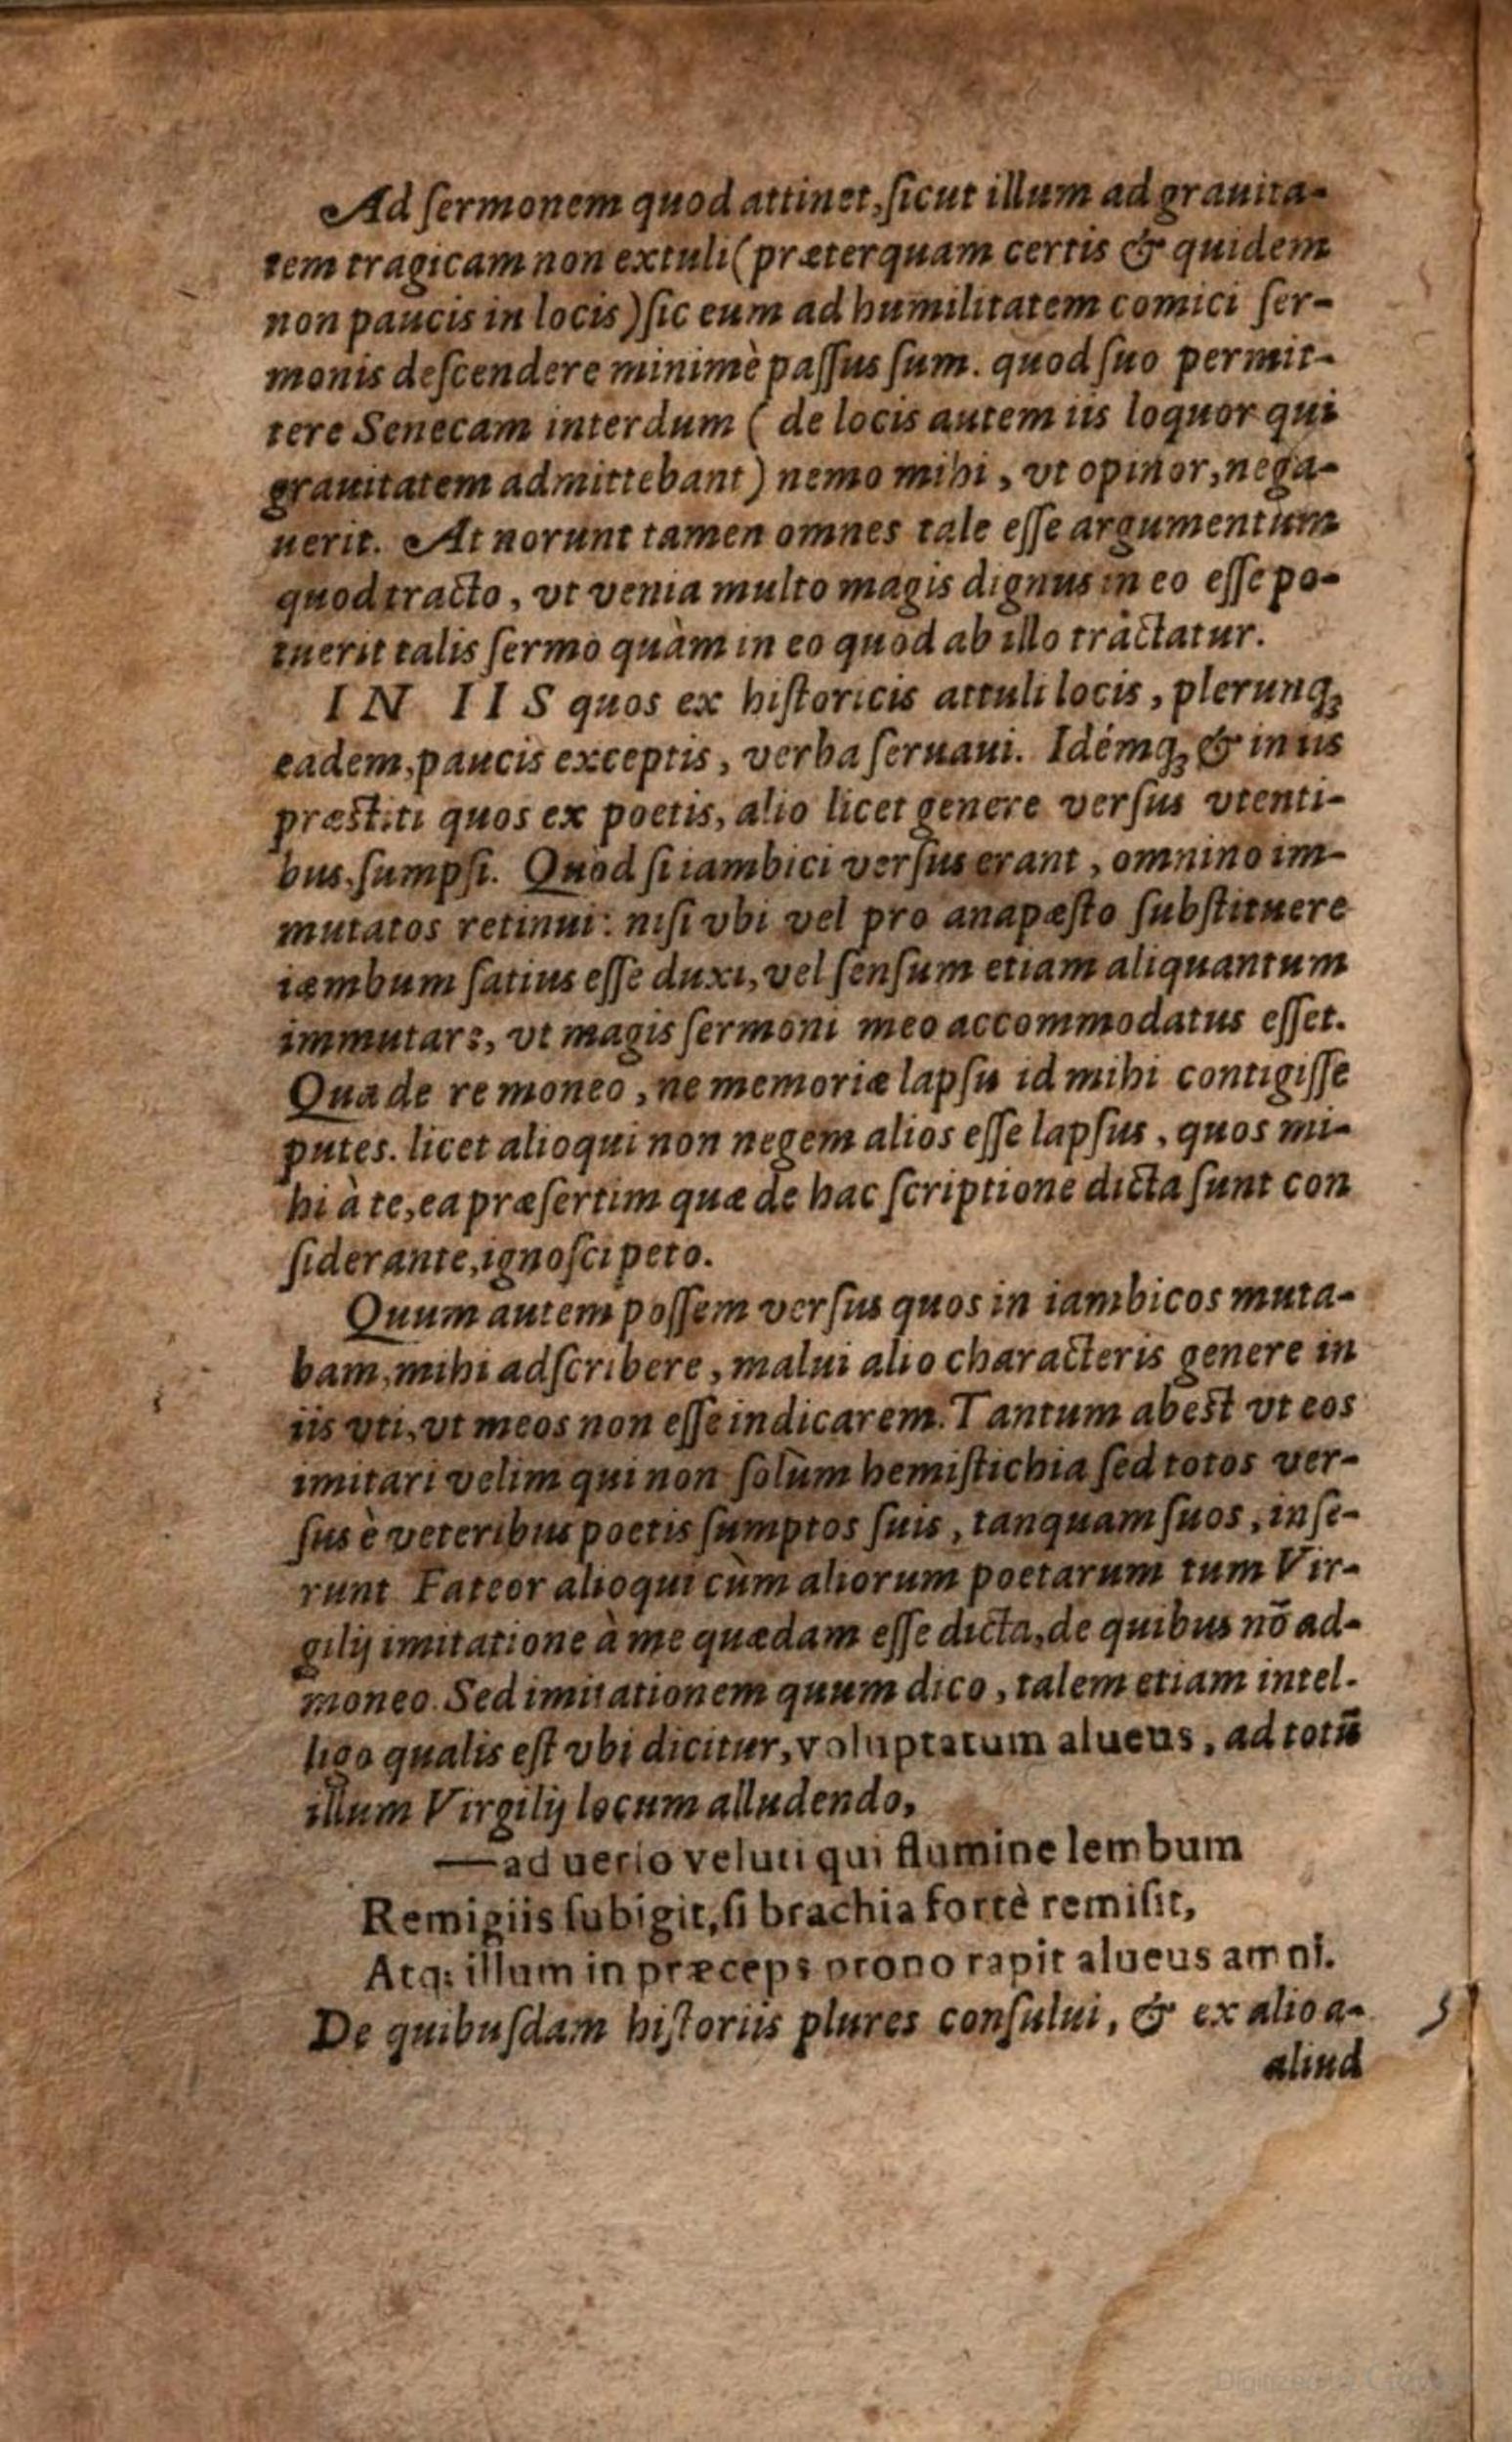 Ad ſermonem quod attinet, ſicut illum ad grauita-
tem tragicam non extuli (præterquam certis & quidem
non paucis in locis) ſic eum ad humilitatem comici ſer-
monis deſcendere minimè paſſus ſum. quod ſuo permit-
tere Senecam interdum ( de locis autem iis loquor qui
grauitatem admittebant) nemo mihi, vt opinor, nega-
uerit. At norunt tamen omnes tale eſſe argumentum
quod tracto, vt venia multo magis dignus in eo eſſe po-
tuerit talis ſermo quàm in eo quod ab illo tractatur.
IN IIS quos ex hiſtoricis attuli locis, plerunq;
eadem, paucis exceptis, verba ſeruaui. Idémq; & in iis
præſtiti quos ex poetis, alio licet genere verſus vtenti-
bus, ſumpſi. Quòd ſi iambici verſus erant, omnino im-
mutatos retinui: niſi vbi vel pro anapæſto ſubſtituere
iambum ſatius eſſe duxi, vel ſenſum etiam aliquantum
immutare, vt magis ſermoni meo accommodatus eſſet.
Qua de re moneo, ne memoriæ lapſu id mihi contigiſſe
putes. licet alioqui non negem alios eſſe lapſus, quos mi-
hi à te, ea præſertim quæ de hac ſcriptione dicta ſunt con
ſiderante, ignoſci peto.
Quum autem poſſem verſus quos in iambicos muta-
bam, mihi adſcribere, malui alio characteris genere in
iis vti, vt meos non eſſe indicarem. Tantum abeſt vt eos
imitari velim qui non ſolùm hemiſtichia ſed totos ver-
ſus è veteribus poetis ſumptos ſuis, tanquam ſuos, inſe-
runt Fateor alioqui cùm aliorum poetarum tum Vir-
gilij imitatione à me quædam eſſe dicta, de quibus nō ad-
moneo. Sed imitationem quum dico, talem etiam intel-
ligo qualis eſt vbi dicitur, voluptatum alueus, ad totū
illum Virgilij locum alludendo,
—aduerſo veluti qui flumine lembum
Remigiis ſubigit, ſi brachia fortè remiſit,
Atq; illum in præceps prono rapit alueus amni.
De quibuſdam hiſtoriis plures conſului, & ex alio a-
aliud